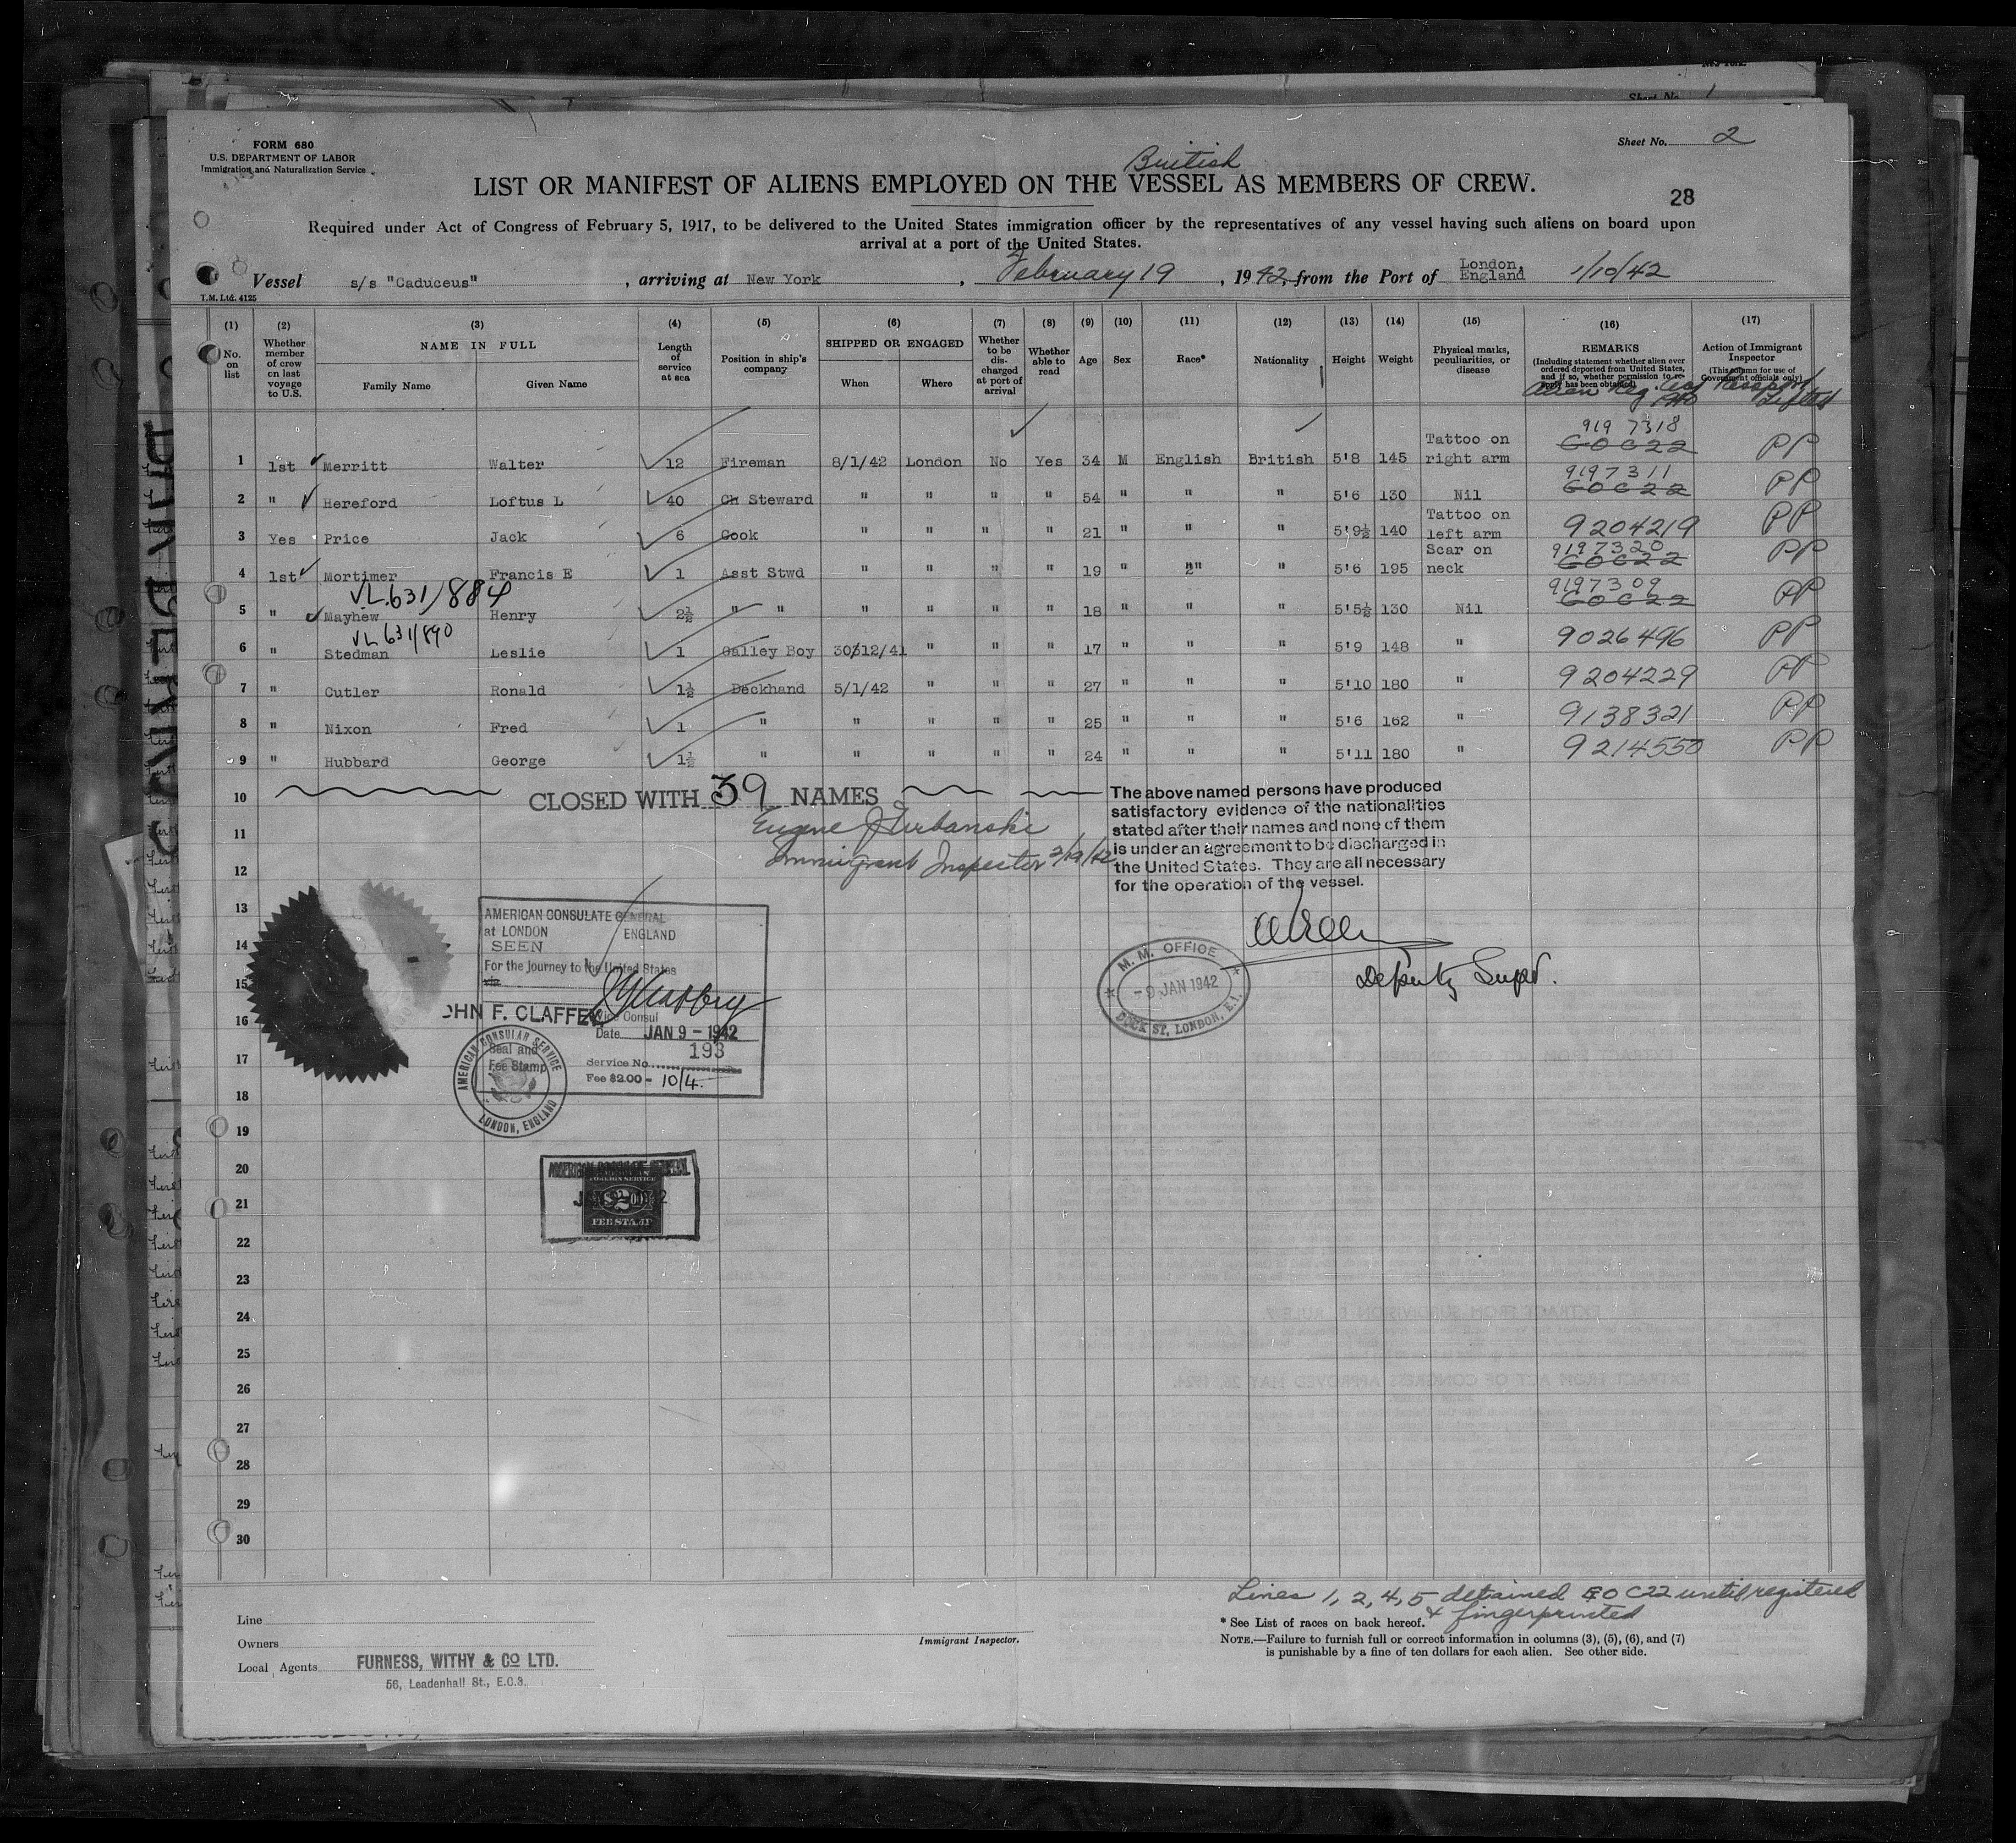 Sheet No. 1
FORM 680
U.S. DEPARTMENT OF LABOR
Immigration and Naturalization Service
Sheet No. 2
British
LIST OR MANIFEST OF ALIENS EMPLOYED ON THE VESSEL AS MEMBERS OF CREW.
28
Required under Act of Congress of February 5, 1917, to be delivered to the United States immigration officer by the representatives of any vessel having such aliens on board upon
arrival at a port of the United States.
Vessel s/s "Caduceus", arriving at New York, February 19, 1942, from the Port of London, England 1/10/42
T.M. Ltd. 4125
(1) (2) (3) (4) (5) (6) (7) (8) (9) (10) (11) (12) (13) (14) (15) (16) (17)
No. on list
Whether member of crew on last voyage to U.S.
NAME IN FULL
Family Name Given Name
Length of service at sea
Position in ship's company
SHIPPED OR ENGAGED
When Where
Whether to be discharged at port of arrival
Whether able to read
Age
Sex
Race*
Nationality
Height
Weight
Physical marks, peculiarities, or disease
REMARKS
(Including statement whether alien ever ordered deported from United States, and if so, whether permission to reapply has been obtained)
Action of Immigrant Inspector
(This column for use of Government officials only)
Alien Reg. Passport Lifted
1 1st Merritt Walter 12 Fireman 8/1/42 London No Yes 34 M English British 5'8 145 Tattoo on right arm 919 7318 EOC22 PP
2 " Hereford Loftus L 40 Ch Steward " " " " 54 " " " 5'6 130 Nil 9197311 EOC22 PP
3 Yes Price Jack 6 Cook " " " " 21 " " " 5'9½ 140 Tattoo on left arm 9204219 PP
4 1st Mortimer Francis E 1 Asst Stwd " " " " 19 " " " 5'6 195 Scar on neck 9197320 EOC22 PP
VL.631/884
5 " Mayhew Henry 2½ " " " " " " 18 " " " 5'5½ 130 Nil 9197309 EOC22 PP
VL 631/890
6 " Stedman Leslie 1 Galley Boy 30/12/41 " " " 17 " " " 5'9 148 " 9026496 PP
7 " Cutler Ronald 1½ Deckhand 5/1/42 " " " 27 " " " 5'10 180 " 9204229 PP
8 " Nixon Fred 1 " " " " " 25 " " " 5'6 162 " 9138321 PP
9 " Hubbard George 1½ " " " " " 24 " " " 5'11 180 " 9214550 PP
10
CLOSED WITH 39 NAMES
Eugene J Urbanski
Immigrant Inspector 2/19/42
The above named persons have produced
satisfactory evidence of the nationalities
stated after their names and none of them
is under an agreement to be discharged in
the United States. They are all necessary
for the operation of the vessel.
Deputy Supt.
M. M. OFFICE
- 9 JAN 1942
DOCK ST, LONDON, E.1.
11
12
13
14
15
16
17
18
19
20
21
22
23
24
25
26
27
28
29
30
AMERICAN CONSULATE GENERAL
at LONDON ENGLAND
SEEN
For the journey to the United States
JOHN F. CLAFFEY
Vice Consul
Date JAN 9 - 1942
Service No. 193
Fee $2.00 - 10/4.
Seal and
Fee Stamp
AMERICAN CONSULAR SERVICE
LONDON, ENGLAND
AMERICAN CONSULATE GENERAL
FOREIGN SERVICE
$2.00
FEE STAMP
Lines 1, 2, 4, 5 detained EO C22 until registered
& fingerprinted
Line
Owners
Local Agents FURNESS, WITHY & CO LTD.
56, Leadenhall St., E.C.3.
Immigrant Inspector.
* See List of races on back hereof.
NOTE.—Failure to furnish full or correct information in columns (3), (5), (6), and (7)
is punishable by a fine of ten dollars for each alien. See other side.